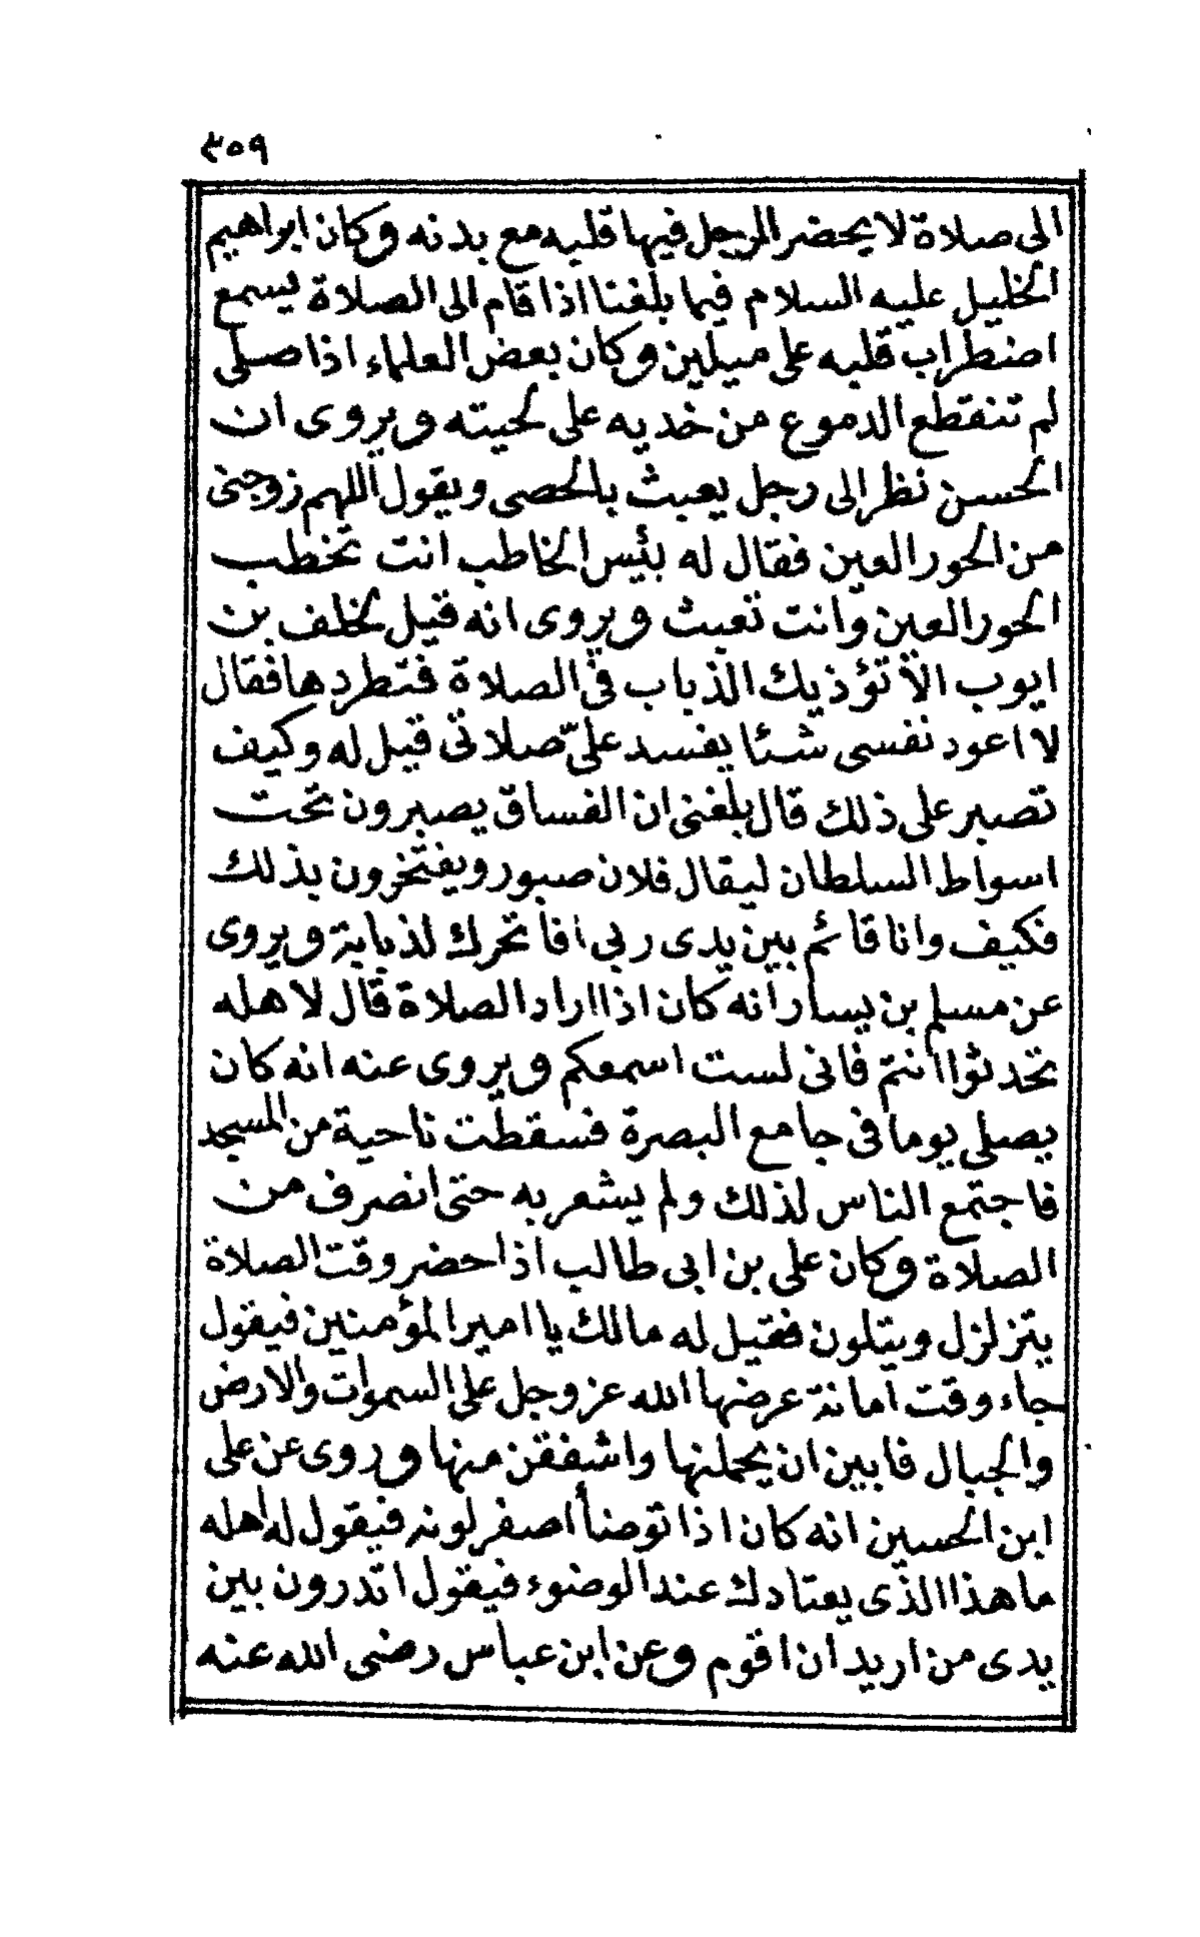 ٣٥٩
الى صلاة لا يحضر الرجل فيها قلبه مع بدنه وكان ابراهيم
الخليل عليه السلام فيما بلغنا اذا قام الى الصلاة يسمع
اضطراب قلبه على ميلين وكان بعض العلماء اذا صلى
لم تنقطع الدموع من خديه على لحيته ويروى ان
الحسن نظر الى رجل يعبث بالحصى ويقول اللهم زوجنى
من الحور العين فقال له بئيس الخاطب انت تخطب
الحور العين وانت تعبث ويروى انه قيل لخلف بن
ايوب الا تؤذيك الذباب فى الصلاة فتطردها فقال
لا اعود نفسى شئا يفسد علىّ صلاتى قيل له وكيف
تصبر على ذلك قال بلغنى ان الفساق يصبرون تحت
اسواط السلطان ليقال فلان صبور ويفتخرون بذلك
فكيف وانا قائم بين يدى ربى افا تحرك لذبابة ويروى
عن مسلم بن يسار انه كان اذا اراد الصلاة قال لاهله
تحدثوا انتم فانى لست اسمعكم ويروى عنه انه كان
يصلى يوما فى جامع البصرة فسقطت ناحية من المسجد
فاجتمع الناس لذلك ولم يشعر به حتى انصرف من
الصلاة وكان على بن ابى طالب اذا حضر وقت الصلاة
يتزلزل ويتلون فقيل له مالك يا امير المؤمنين فيقول
جاء وقت امانة عرضها الله عز وجل على السموات والارض
والجبال فابين ان يحملنها واشفقن منها وروى عن على
ابن الحسين انه كان اذا توضأ اصفر لونه فيقول له اهله
ما هذا الذى يعتادك عند الوضوء فيقول اتدرون بين
يدى من اريد ان اقوم وعن ابن عباس رضى الله عنه